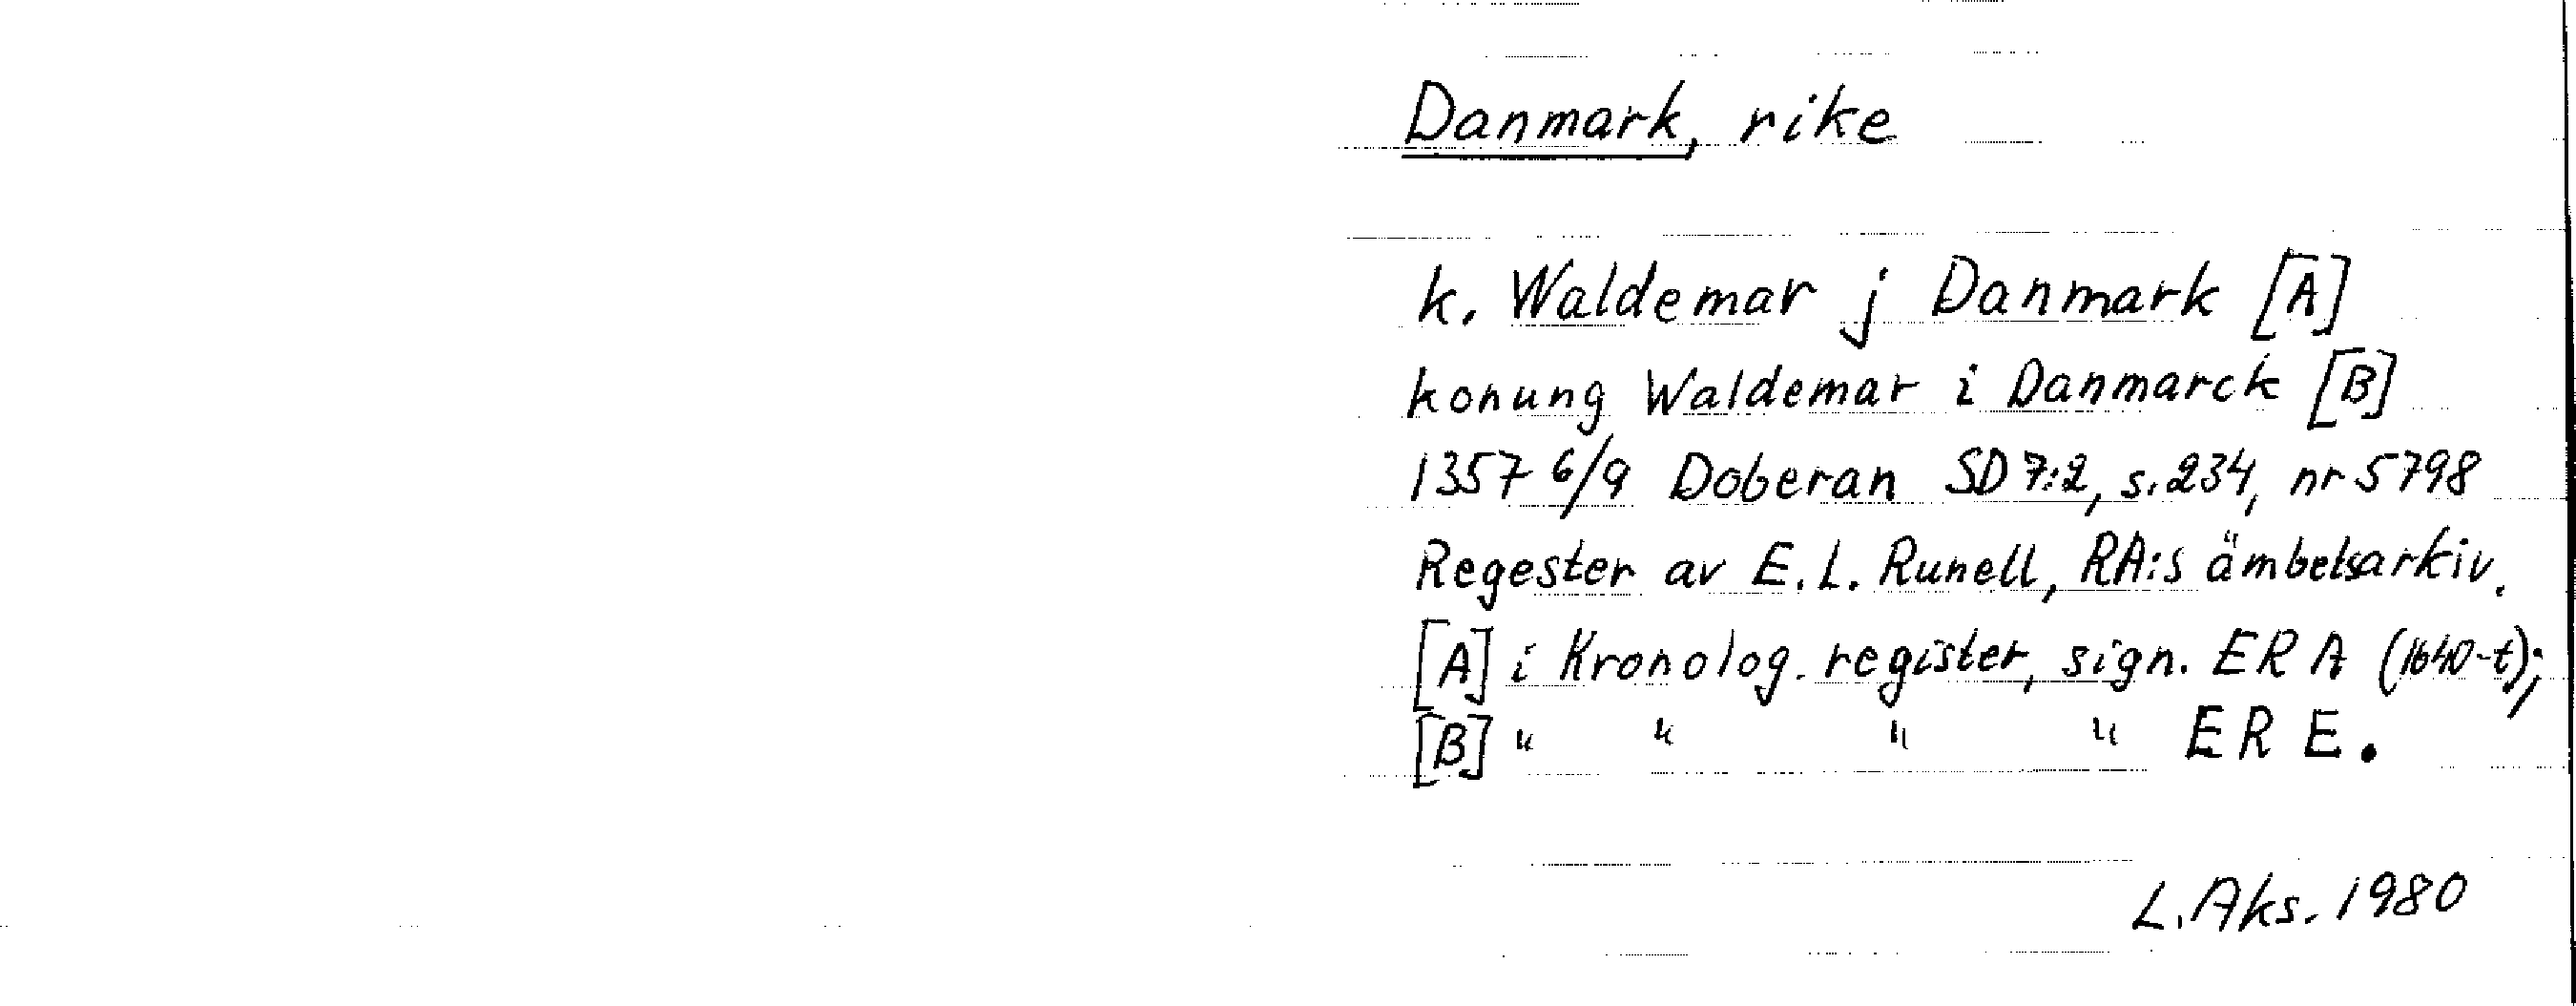 Danmark, rike
k. Waldemar j Danmark [A]
konung Waldemar i Danmarck [B]
1357 6/9 Doberan SD 7:2, s. 234, nr 5798
Regester av E. L. Runell, RA:s ämbetsarkiv.
[A] i Kronolog. register, sign. ERA (1640-t);
[B] " " " " ERE.
L. Aks. 1980